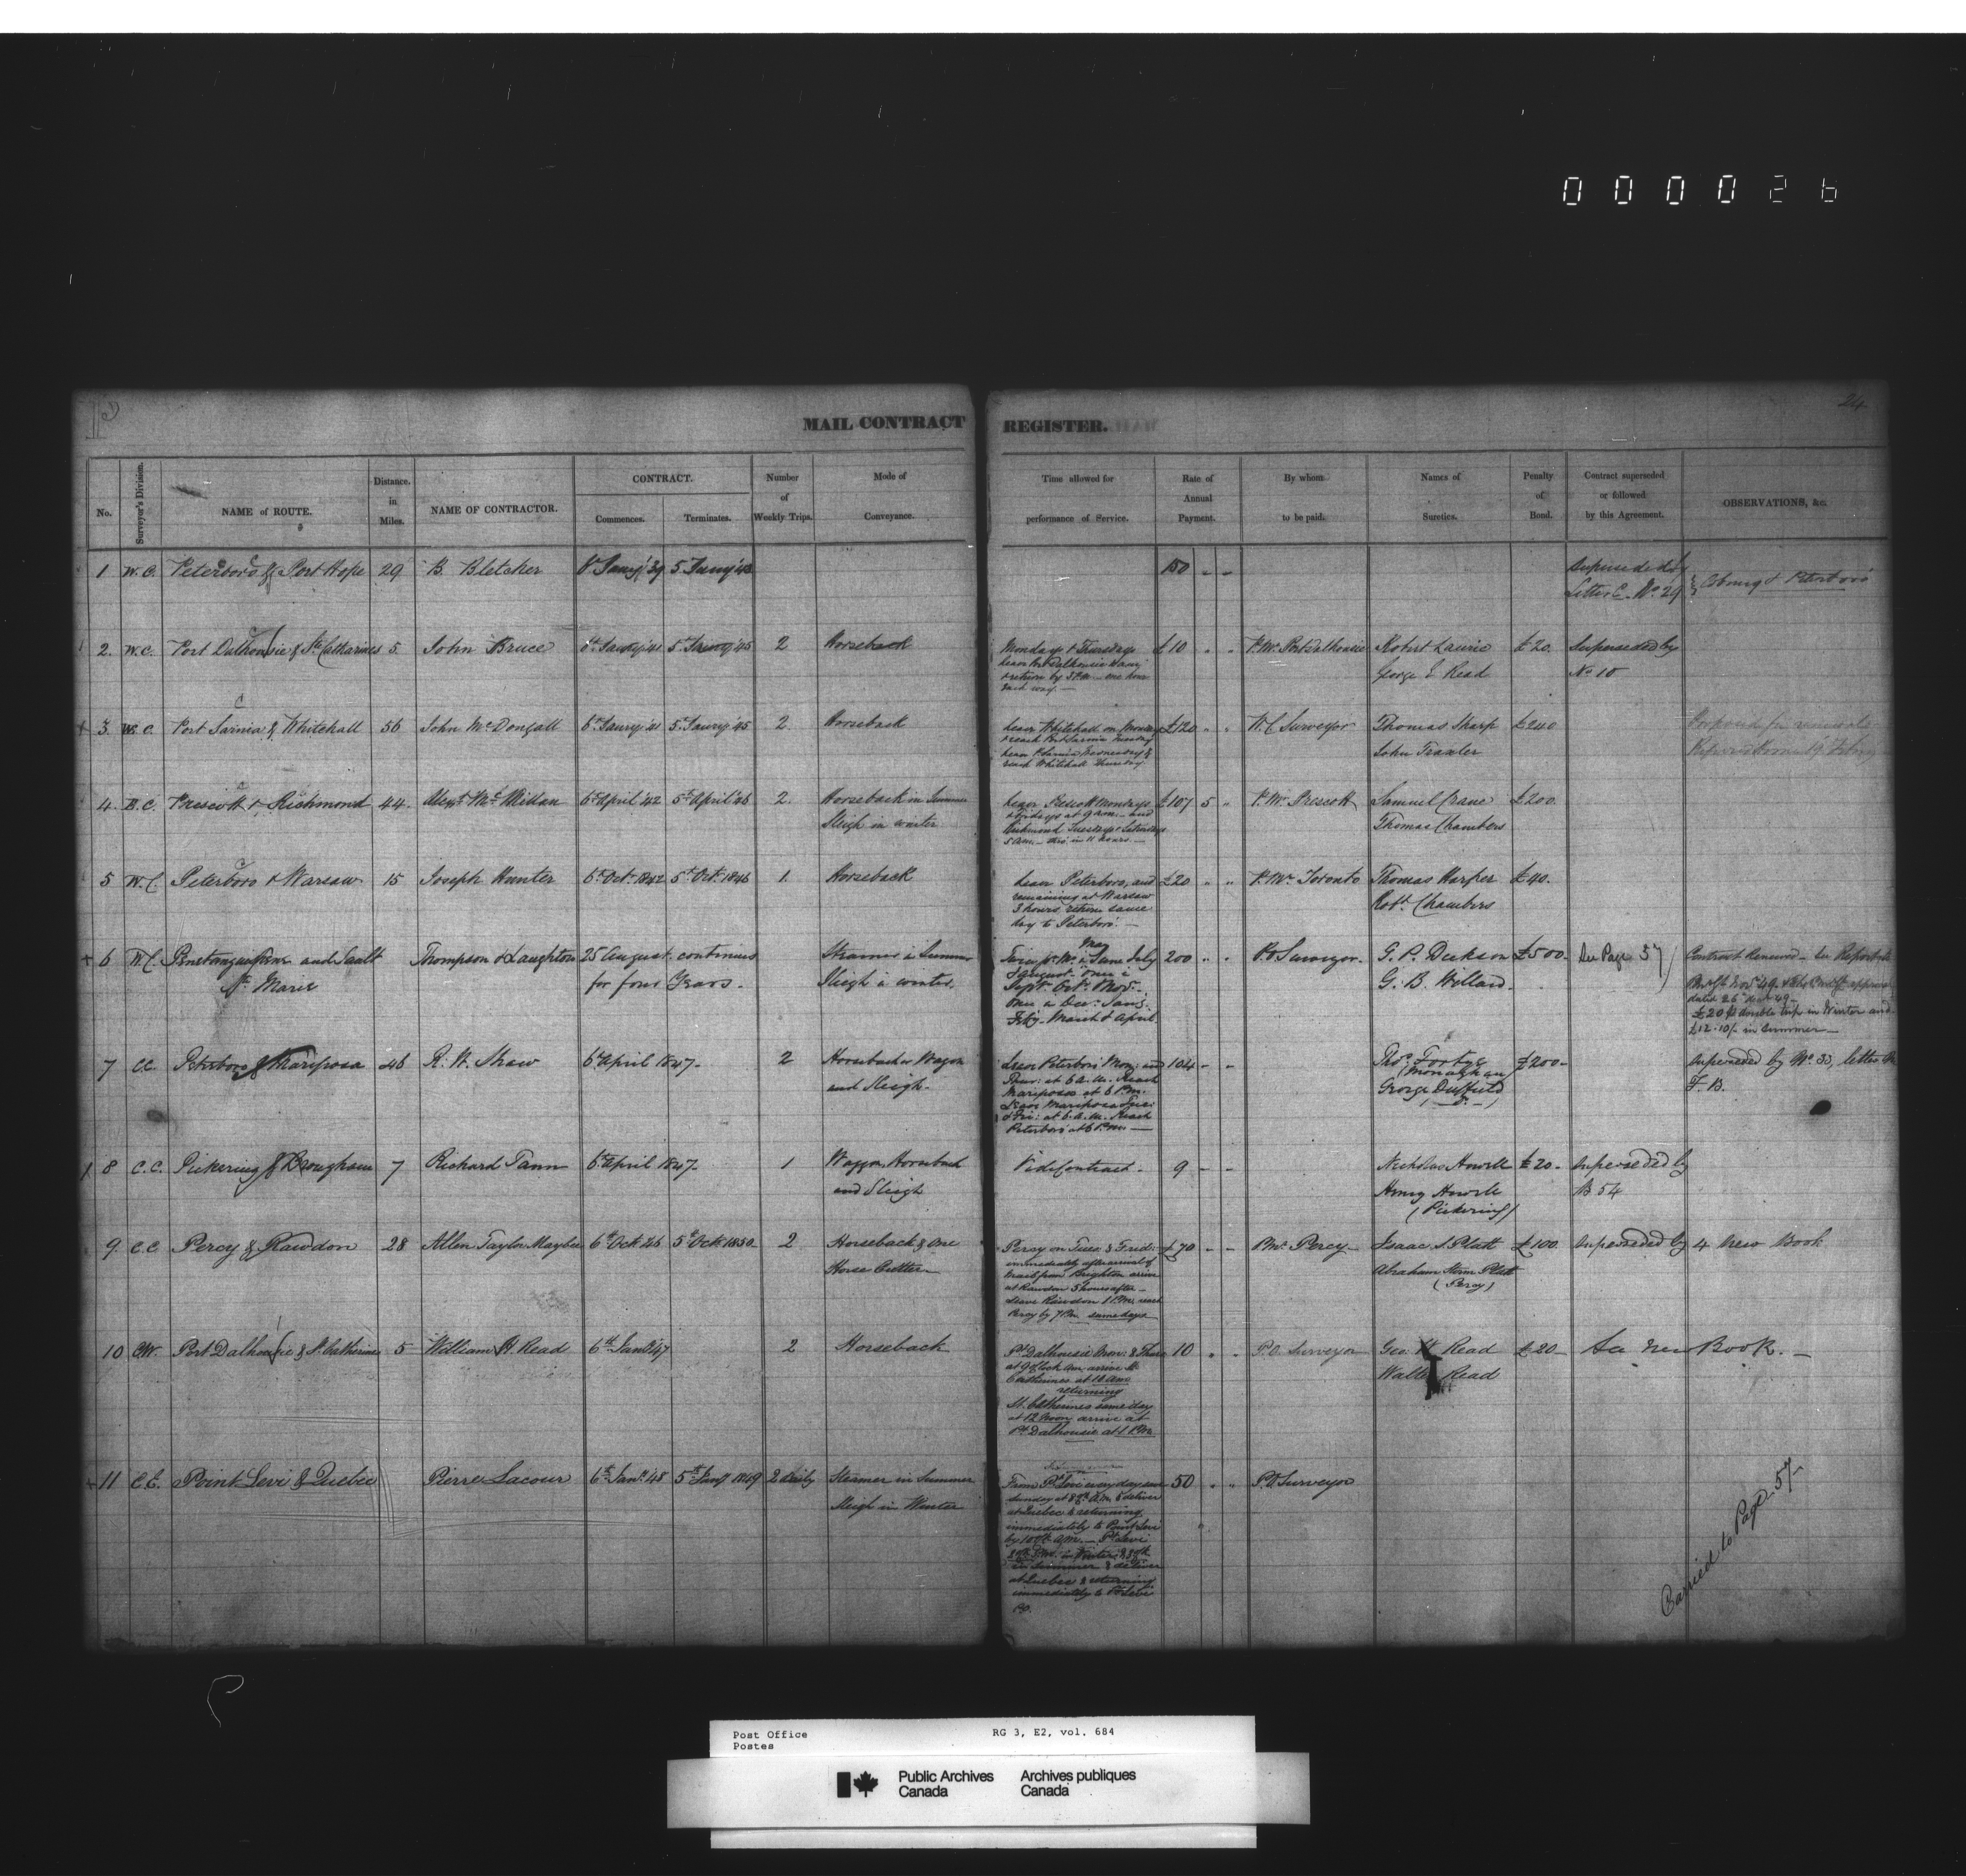 000026
24
MAIL CONTRACT REGISTER.
No.
Surveyor's Division.
NAME of ROUTE.
Distance. in Miles.
NAME OF CONTRACTOR.
CONTRACT.
Commences.
Terminates.
Number of Weekly Trips.
Mode of Conveyance.
Time allowed for performance of Service.
Rate of Annual Payment.
By whom to be paid.
Names of Sureties.
Penalty of Bond.
Contract superseded or followed by this Agreement.
OBSERVATIONS, &c.
1 W.C. Peterboro & Port Hope 29 B. Bletcher 5 Jany '43 150 - - Superseded by
Letter C. No. 29 Cobourg & Peterboro
2. W.C. Port Dalhousie & St. Catharines 5. John Bruce 6th Jany '41 5th Jany '45 2 Horseback
Mondays & Thursdays
leave Port Dalhousie
& return by
each way. —
£10 " " P.Mr. Port Dalhousie Robert Laurie £20. Superseded by
George E Read No 10
3. W.C. Port Sarnia & Whitehall 56 John McDougall 6th Jany '41 5 Jany '45 2. Horseback
leave Whitehall on Monday
& reach Port Sarnia Tuesday
leave P. Sarnia Wednesday &
reach Whitehall Thursday
£120 " " W.C. Surveyor Thomas Sharp £240
John Traxler
4. B.C. Prescott & Richmond 44. Alexr. McMillan 6th April '42 5th April '46 2. Horseback in Summer
Sleigh in winter
leave Prescott Mondays
& Fridays at 9 a.m. and
Richmond Tuesdays & Saturdays
5 a.m. — in 11 hours. —
£107 5 " P.Mr. Prescott Samuel Crane £200.
Thomas Chambers
5 W.C. Peterboro & Warsaw 15 Joseph Hunter 6th Oct. 1842 5th Octr. 1846 1. Horseback
leave Peterboro, and
remaining at Warsaw
3 hours return same
day to Peterboro. —
£20 " " P.Mr. Toronto Thomas Harper £40.
Robt. Chambers
6 W.C. Penetanguishene and Sault
St. Marie
Thompson & Laughton 25 August continues
for four Years.
Steamer in Summer
Sleigh in winter.
May
Twice pr. M. in June July
& August. once in
Sept. Oct. & Nov.
once in Dec. Jany.
Feby. March & April
200 " " P.O Surveyor. G. P. Dickson £500. See Page 57
G. B. Willard.
Contract Renewed — See Report
dated 26 Decr 49 —
£20 double trip in Winter and
£12.10/- in Summer —
7 C.C. Peterboro & Mariposa 46 R. W. Shaw 6th April 1847. 2 Horseback or Wagon
and Sleigh.
Leave Peterboro Mon: and
Thur: at 6 A.M. Reach
Mariposa at 6 P.M.
Leave Mariposa Tue:
& Fri: at 6 A.M. Reach
Peterboro at 6 P.M. —
104 - - Thos. Fortye £200. Superseded by No 33, letter
(Monaghan) F. B.
George Duffield
8 C.C. Pickering & Brougham 7 Richard Tann 6th April 1847. 1 Waggon, Horseback
and Sleigh
Vide Contract. 9 - - Nicholas Howell £20 - Superseded by
Henry Howell B 54
(Pickering)
9. C.C Percy & Rawdon 28 Allen Taylor Maybee 6th Octr. '46 5th Octr. 1850 2 Horseback & One
Horse Cutter
Percy on Tues. & Frid:
immediately after arrival of
Mail from Brighton arrive
at Rawdon 5 hours after —
Leave Rawdon 1 P.M. reach
Percy by 7 P.M. same days
£70 - - P.Mr. Percy Isaac S Platt £100 Superseded by 4 New Book
Abraham Storm Platt
(Percy)
10 C.W. Port Dalhousie & St. Catherines 5 William H Read 6th Jany '47 2 Horseback
Pt. Dalhousie Mon: & Thurs
at 9 o'Clock am arrive St.
Catherines at 10 am
returning
St. Catherines same day
at 12 Noon arrive at
Pt. Dalhousie at 1 P.M.
10 " - P.O. Surveyor Geo. H Read £20 - See New Book. —
Walter Read
11 C.E. Point Levi & Quebec Pierre Lacour 6th Jany. '48 5th Jany 1849 2 daily Steamer in Summer
Sleigh in Winter
From Pt. Levi every day save
Sunday at A.M. & deliver
at Quebec & returning
immediately to Point Levi
by A.M. — Pt. Levi
P.M. in Winter &
in Summer & deliver
at Quebec & returning
immediately to Pt. Levi
50 " " P.O Surveyor
Carried to Page 57
Post Office
Postes
RG 3, E2, vol. 684
Public Archives
Canada
Archives publiques
Canada